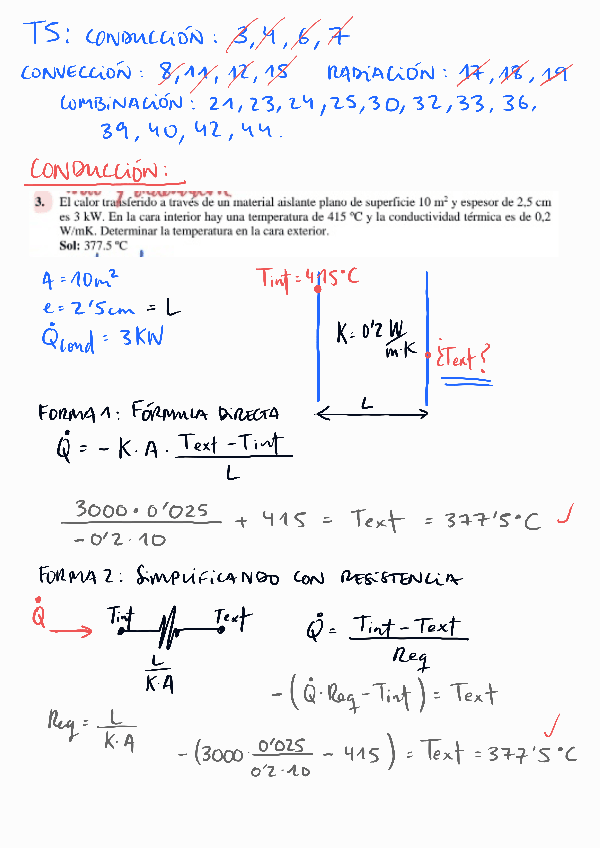 TS: CONDUCCIÓN: 3, 4, 6, 7
CONVECCIÓN: 8, 11, 12, 15 RADIACIÓN: 17, 18, 19
COMBINACIÓN: 21, 23, 24, 25, 30, 32, 33, 36,
39, 40, 42, 44.
CONDUCCIÓN:
3. El calor transferido a través de un material aislante plano de superficie 10 m² y espesor de 2,5 cm
es 3 kW. En la cara interior hay una temperatura de 415 ºC y la conductividad térmica es de 0,2
W/mK. Determinar la temperatura en la cara exterior.
Sol: 377.5 ºC
A = 10m²
e = 2'5cm = L
Q̇cond = 3KW
Tint = 415°C
K = 0'2 W/m·K
¿Text?
L
FORMA 1: FÓRMULA DIRECTA
Q̇ = - K · A · (Text - Tint)/L
(3000 · 0'025)/(-0'2 · 10) + 415 = Text = 377'5°C ✓
FORMA 2: SIMPLIFICANDO CON RESISTENCIA
Q̇ Tint Text
L/(K·A)
Q̇ = (Tint - Text)/Req
-(Q̇ · Req - Tint) = Text
Req = L/(K·A)
-(3000 · 0'025/(0'2 · 10) - 415) = Text = 377'5°C ✓